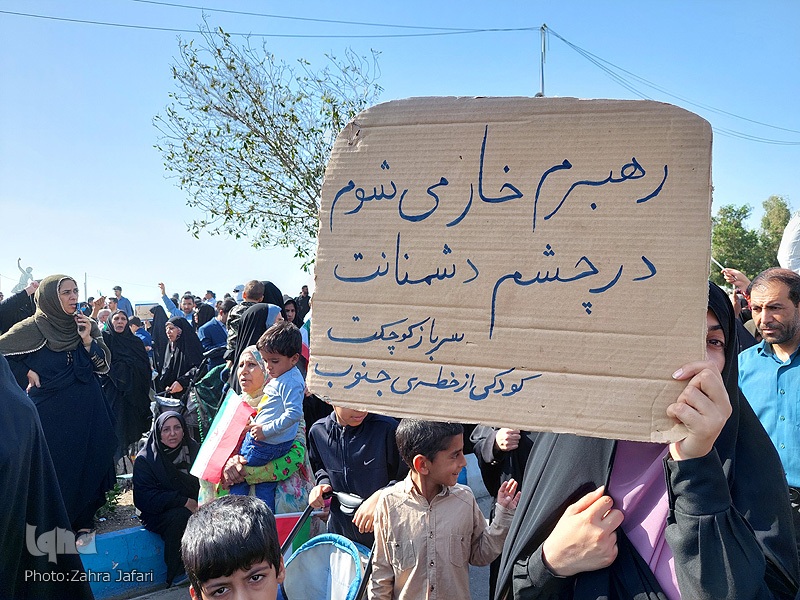 رهبرم خار می شوم
در چشم دشمنانت
سرباز کوچکت
کودکی از خطه ی جنوب
iqna
Photo:Zahra Jafari